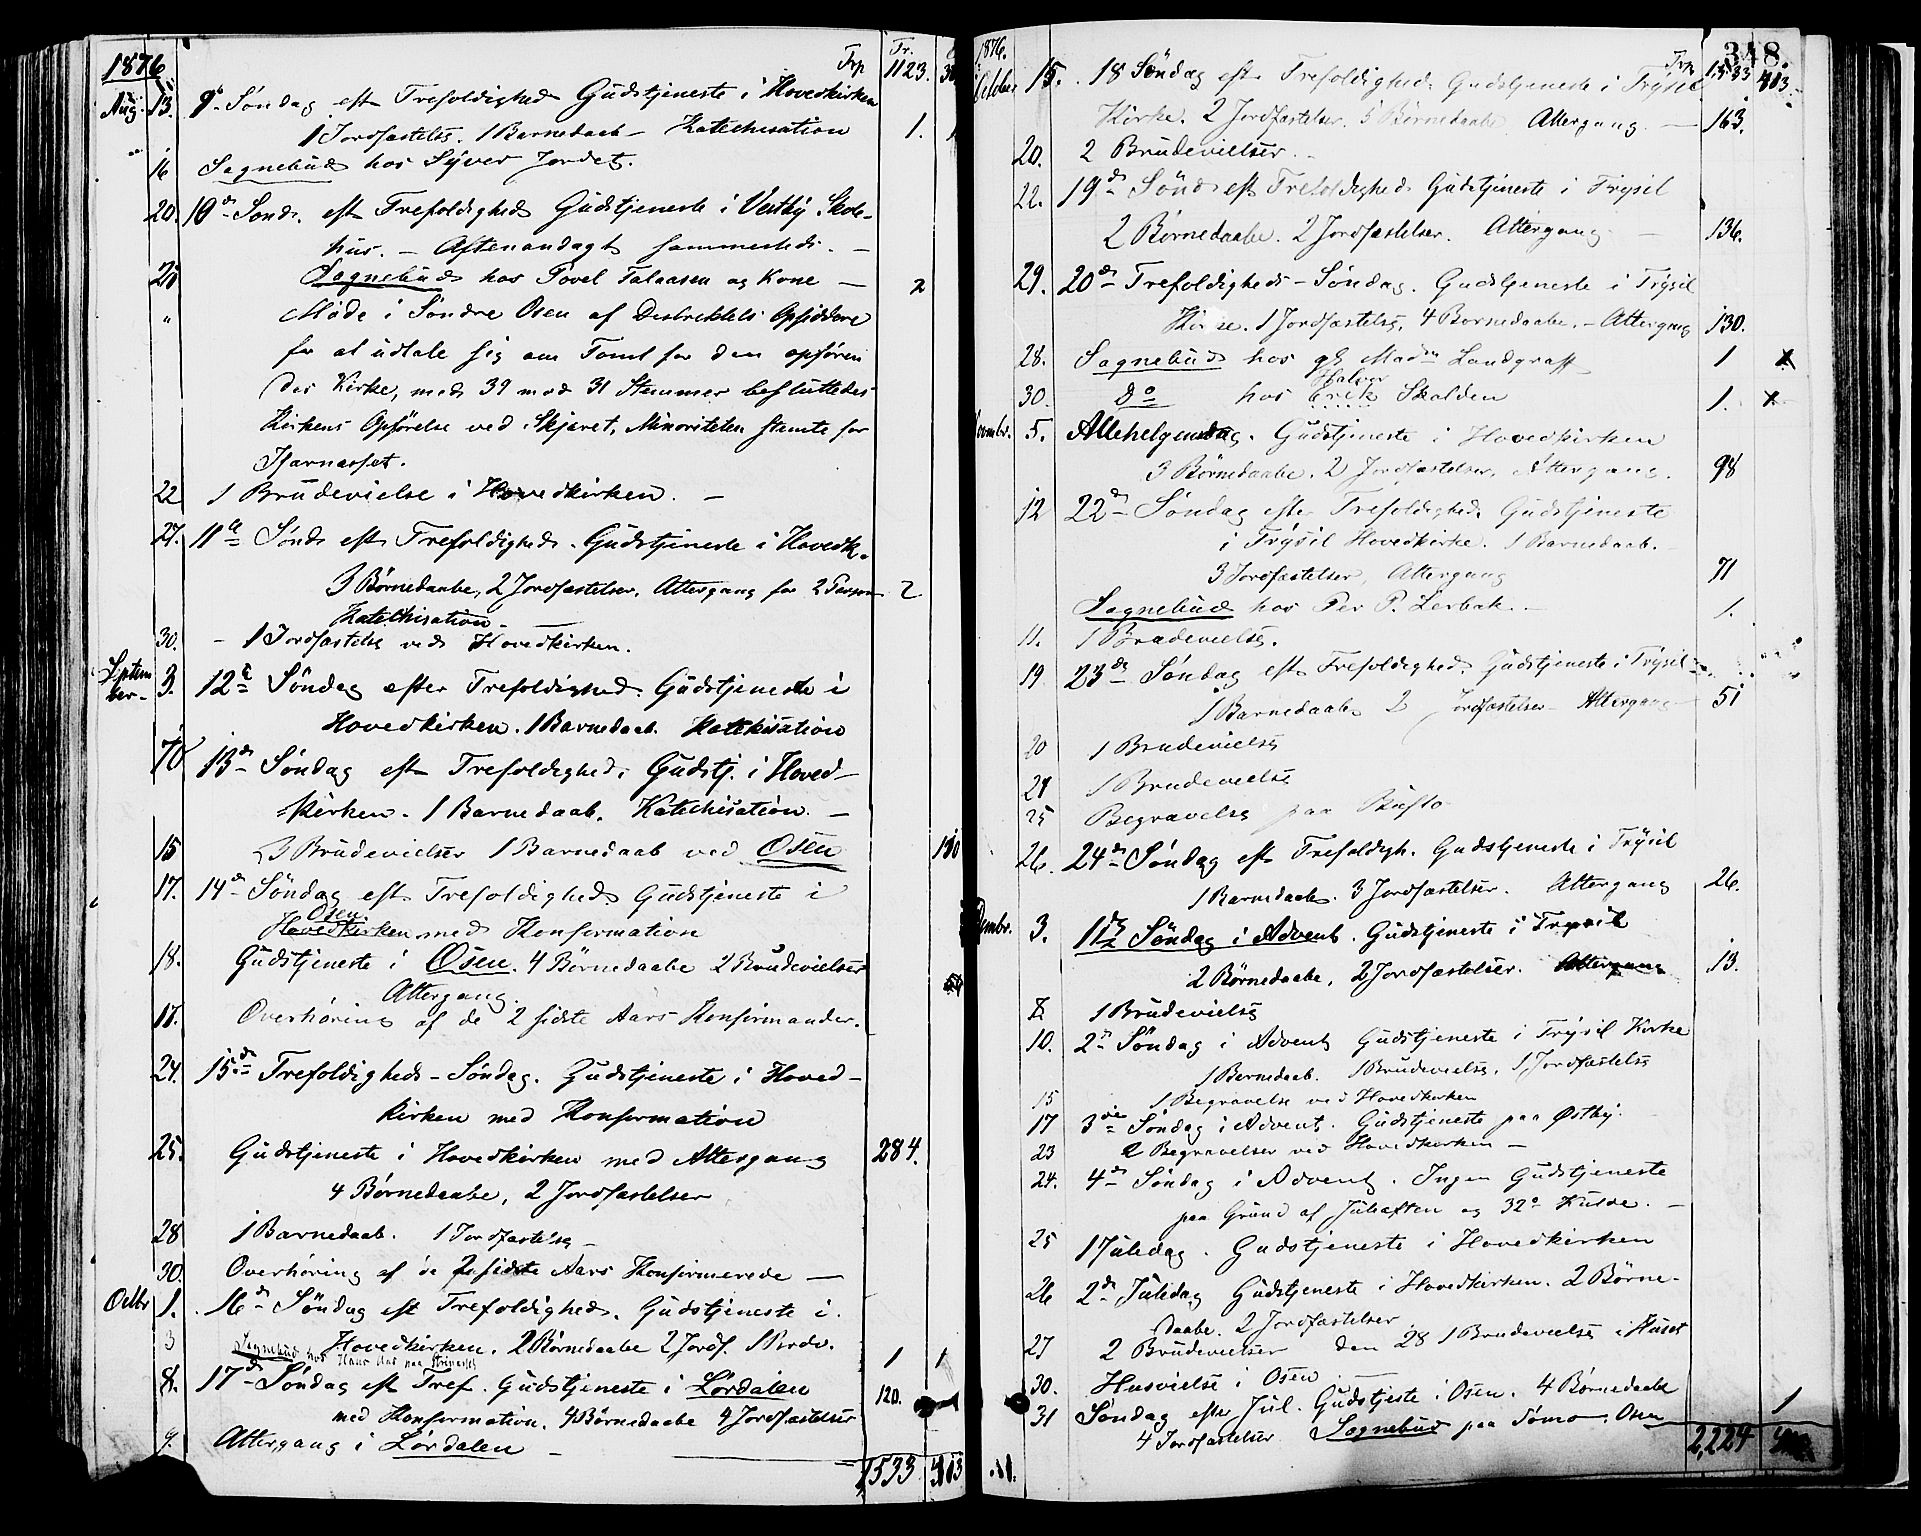 1876 Trp Tr. 1123. 30
Aug. 13. 9de Søndag eft Trefoldighed Gudstjeneste i Hovedkirken
1 Jordfæstelse. 1 Barnedaab – Katechisation 1.
16 Sognebud hos Syver Jordet.
20. 10de Sønd. eft Trefoldighed Gudstjeneste i Vestby Skole-
hus. – Aftenandagt sammesteds. –
Sognebud hos Povel Talaasen og Kone – 2
„ Møde i Søndre Osen af Destriktets Opsiddere
for at udtale sig om Tomt for den opføren
des Kirke, med 39 mod 31 Stemmer besluttedes
Kirkens Opførelse ved Skjæret, Minoriteten stemte for
22 1 Brudevielse i Hovedkirken. –
27. 11te Sønd eft Trefoldighed. Gudstjeneste i Hovedk.
3 Børnedaabe, 2 Jordfæstelser. Altergang for 2 Person 2
Katechisation –
30. – 1 Jordfæstelse ved Hovedkirken.
Septem
ber – 3. 12te Søndag efter Trefoldighed. Gudstjeneste i
Hovedkirken. 1 Barnedaab. Katekisation
10 13de Søndag eft Trefoldighed. Gudstj. i Hoved-
kirken. 1 Barnedaab. Katechisation. –
15 3 Brudevielser 1 Barnedaab ved Osen
17. 14de Søndag eft Trefoldighed Gudstjeneste i
Osen
Hovedkirken med Konfirmation
18. Gudstjeneste i Osen. 4 Børnedaabe 2 Brudevielser
Altergang.
17. Overhøring af de 2 sidste Aars Konfirmander.
24. 15de Trefoldigheds-Søndag. Gudstjeneste i Hoved-
kirken med Konfirmation
25. Gudstjeneste i Hovedkirken med Altergang 284.
4 Børnedaabe, 2 Jordfæstelser
28 1 Barnedaab. 1 Jordfæstelse –
30. Overhøring af de 2 sidste Aars Konfirmerede –
Octbr 1. 16de Søndag eft Trefoldighed. Gudstjeneste i
Hovedkirken. 2 Børnedaabe 2 Jordf. 1 Brudv.
3 Sognebud hos 1 1
8. 17de Søndag eft Tref. Gudstjeneste i Lørdalen 120.
med Konfirmation. 4 Børnedaabe 4 Jordfæstelser
9. Altergang i Lørdalen –
1533
1876. Trp 348.
October 15. 18 Søndag eft Trefoldighed Gudstjeneste i Trysil 1533
Kirke. 2 Jordfæstelser. 5 Børnedaabe Altergang. – 163.
20. 2 Brudevielser.
22. 19de Sønd eft Trefoldighed Gudstjeneste i Trysil
2 Børnedaabe. 2 Jordfæstelser. Altergang – 136.
29. 20de Trefoldigheds-Søndag. Gudstjeneste i Trysil
Kirke. 1 Jordfæstelse. 4 Børnedaabe. – Altergang 130.
28. Sognebud hos gl. Madm Landgraff 1 x
Halvor
30. do hos Erik Skolden 1. x
5. Allehelgensdag. Gudstjeneste i Hovedkirken
3 Børnedaabe. 2 Jordfæstelser. Altergang. 98
12 22de Søndag efter Trefoldighed. Gudstjeneste
i Trysil Hovedkirke. 1 Barnedaab.
3 Jordfæstelser, Altergang 71
Sognebud hos Per P. Lerbak. – 1.
11. 1 Brudevielse.
19 23de Søndag eft Trefoldighed. Gudstjeneste i Trysil
1 Barnedaab 2 Jordfæstelser – Altergang 51
20 1 Brudevielse
1 Brudevielse
25 Begravelse paa
26. 24de Søndag eft Trefoldigh. Gudstjeneste i Trysil
1 Barnedaab. 3 Jordfæstelser. Altergang 26.
3. 1ste Søndag i Advent. Gudstjeneste i Trysil
2 Børnedaabe, 2 Jordfæstelser. Altergang 13.
1 Brudevielse
10. 2de Søndag i Advent Gudstjeneste i Trysil Kirke
1 Barnedaab. 1 Brudevielse. 1 Jordfæstelse
15 1 Begravelse ved Hovedkirken
17 3die Søndag i Advent. Gudstjeneste paa Østby.
23 2 Begravelser ved Hovedkirken –
24. 4de Søndag i Advent. Ingen Gudstjeneste
paa Grund af Juleaften og 32° Kulde. –
25 1 Juledag. Gudstjeneste i Hovedkirken
26 2de Juledag Gudstjeneste i Hovedkirken. 2 Børne-
daabe. 2 Jordfæstelser
27 2 Brudevielser den 28 1 Brudevielse i Huset
30. Husvielse i Osen
31 Søndag efter Jul. Gudstjeste i Osen. 4 Børnedaabe
4 Jordfæstelser Sognebud paa Tømo, Osen 1
2,224